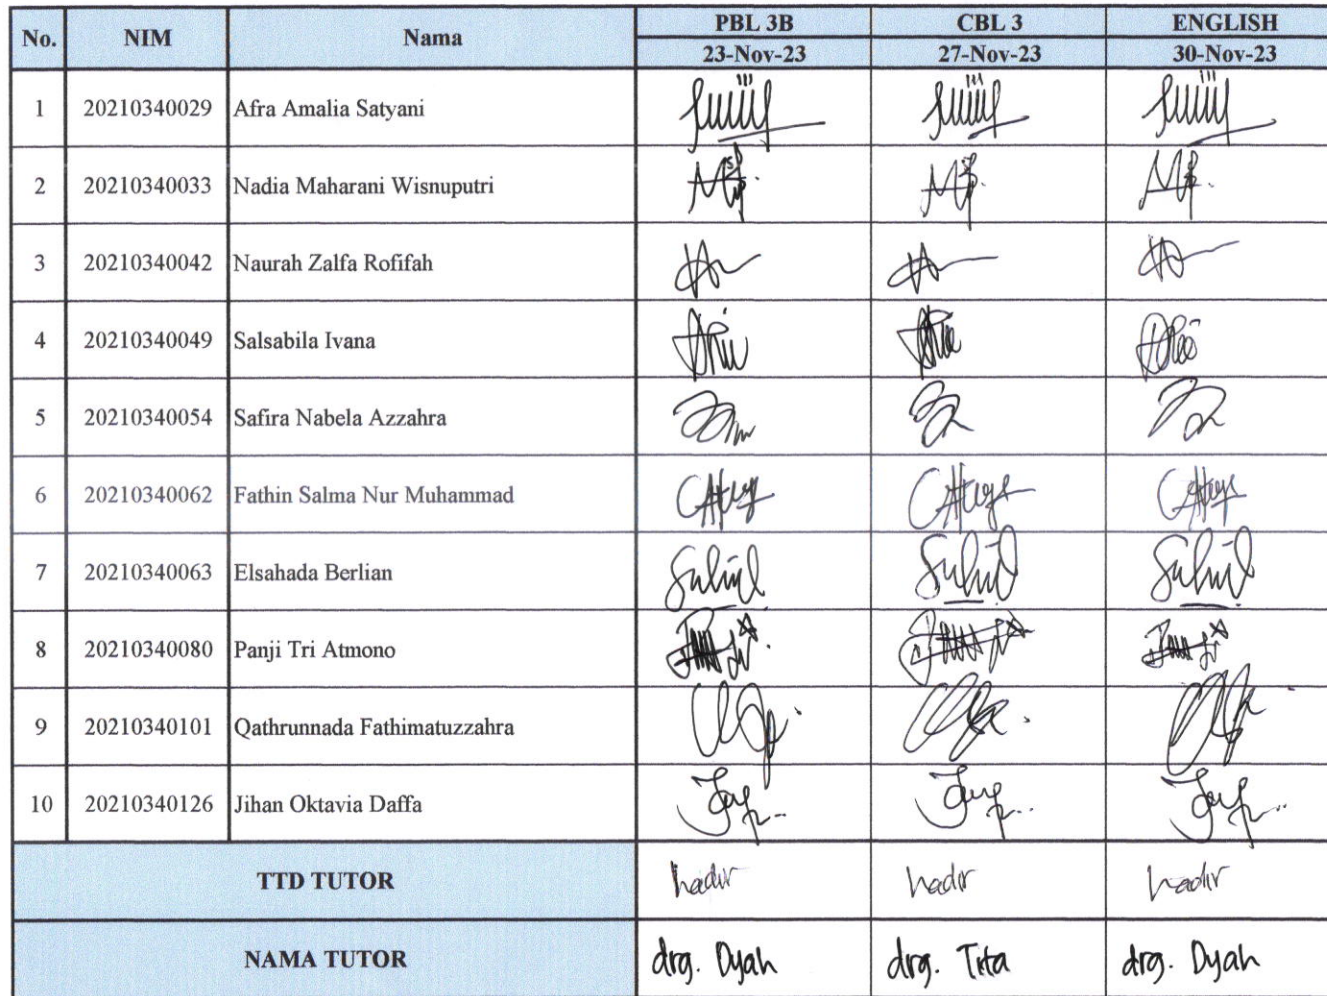 No. NIM Nama PBL 3B CBL 3 ENGLISH
23-Nov-23 27-Nov-23 30-Nov-23
1 20210340029 Afra Amalia Satyani
2 20210340033 Nadia Maharani Wisnuputri
3 20210340042 Naurah Zalfa Rofifah
4 20210340049 Salsabila Ivana
5 20210340054 Safira Nabela Azzahra
6 20210340062 Fathin Salma Nur Muhammad
7 20210340063 Elsahada Berlian
8 20210340080 Panji Tri Atmono
9 20210340101 Qathrunnada Fathimatuzzahra
10 20210340126 Jihan Oktavia Daffa
TTD TUTOR hadir hadir hadir
NAMA TUTOR drg. Dyah drg. Tita drg. Dyah